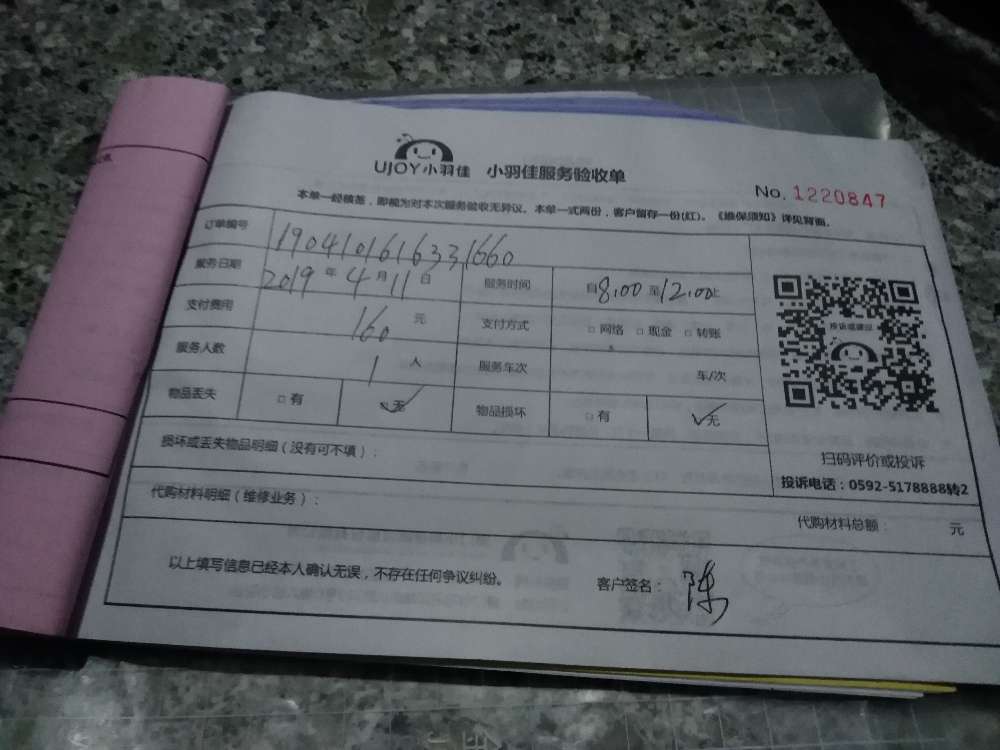 UJOY小羽佳 小羽佳服务验收单
No. 1220847
本单一经核签，即视为对本次服务验收无异议。本单一式两份，客户留存一份(红)。《维保须知》详见背面。
订单编号 1904101616331660
服务日期 2019 年 4 月 11 日 服务时间 自8:00 至12:00止
支付费用 160 元 支付方式 □ 网络 □ 现金 □ 转账
服务人数 1 人 服务车次 车/次
物品丢失 □ 有 ✓无 物品损坏 □ 有 ✓无
投诉或建议
扫码评价或投诉
投诉电话：0592-5178888转2
损坏或丢失物品明细（没有可不填）：
代购材料明细（维修业务）： 代购材料总额： 元
以上填写信息已经本人确认无误，不存在任何争议纠纷。 客户签名： 陈